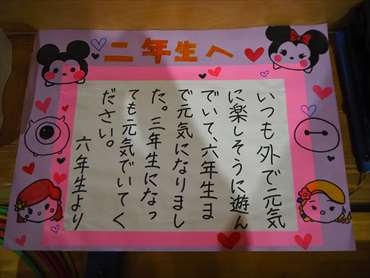 二年生へ
いつも外で元気
に楽しそうに遊ん
でいて、六年生ま
で元気になりまし
た。三年生になっ
ても元気でいてく
ださい。
六年生より